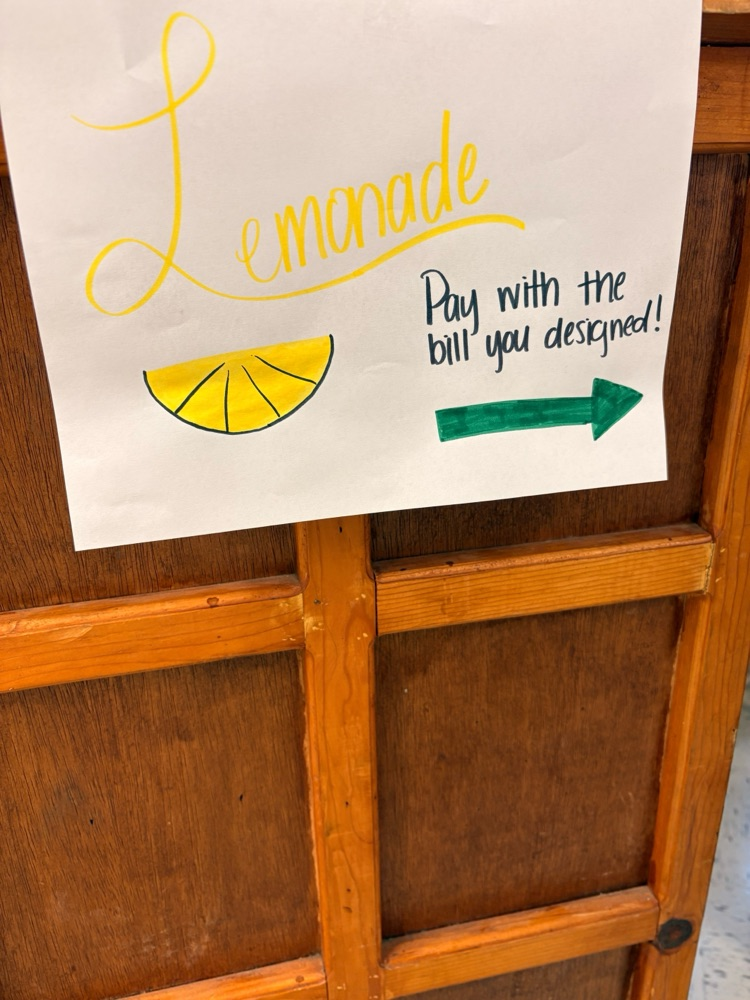 Lemonade
Pay with the
bill you designed!